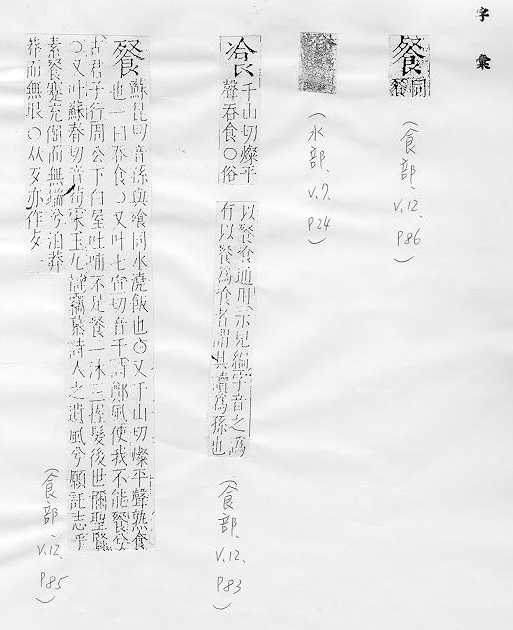 字彙
同
(食部、v.12、p86)
(水部、v.7、p24)
飡 千山切燦平
聲吞食〇俗
有以餐爲食名謂其讀爲孫也
(食部、v.12、p83)
餐 蘇昆切音孫與飱同水澆飯也〇又千山切燦平聲熟食
也一曰吞食〇又叶七宣切音千詩鄭風使我不能餐兮
古君子行周公下白屋吐哺不足餐一沐三握髮後世稱聖賢
〇又叶蘇春切音荀宋玉九辯竊慕詩人之遺風兮願託志乎
素餐蹇充倔而無端兮泊莽
莽而無垠〇从歺亦作歹
(食部、v.12、p85)